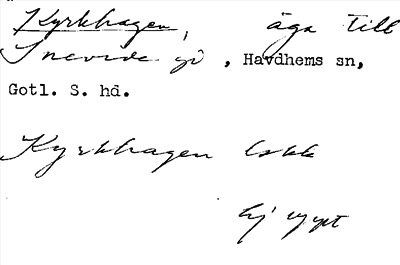 Kyrkhagen, äga till
Snevide gd, Havdhems sn,
Gotl. S. hd.
Kyrkhagen lskk
Ej uppt